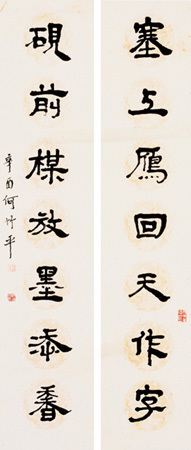 塞上鴈回天作字
硯前楳放墨添香
辛酉何竹平